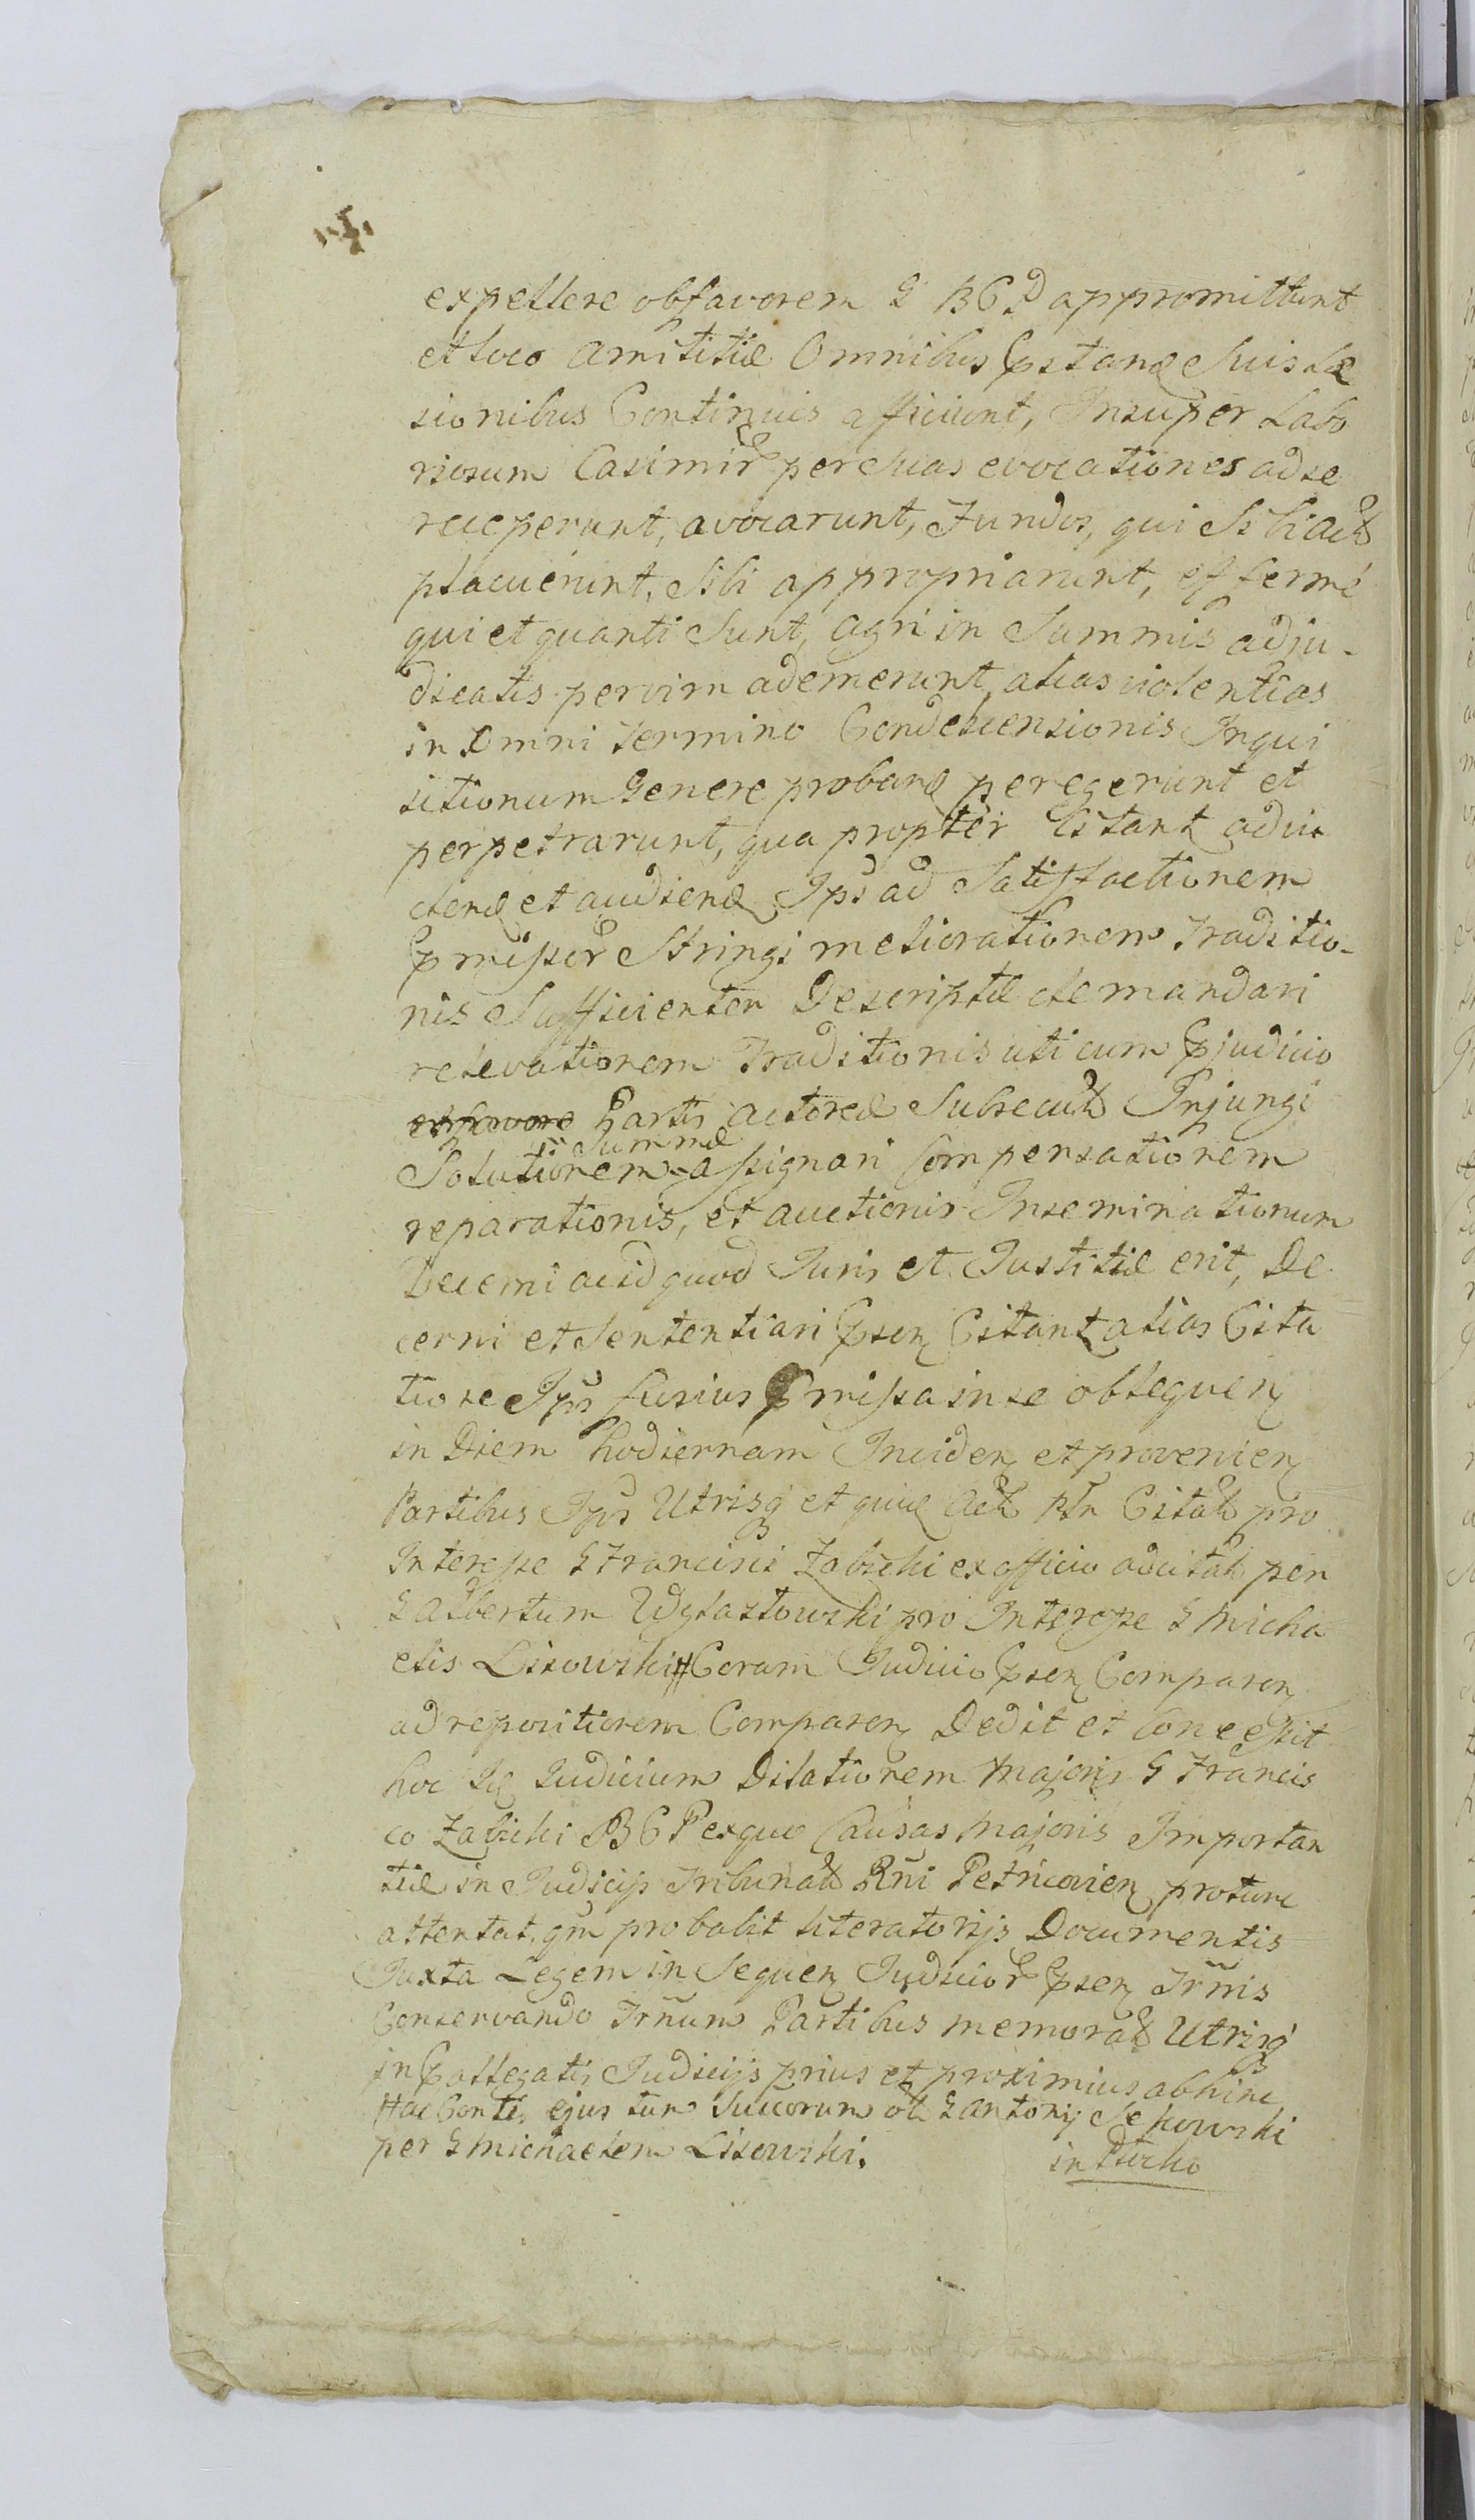 expellere ob favorem G B C P appromittunt
et loco amititiæ Omnibus Cpstand Suis læ
sionibus Continuis afficiunt, Insuper Labo
riosum Casimir per Suas evocationes ad se
receperunt, avocarunt, Fundos, qui Sibi act
placuerunt, Sibi appropriarunt, et ferme
qui et quanti Sunt, agri in Summis adju-
dicatis per vim ademerunt, alias violentias
in Omni termino Condescensionis Inqui
sitionum Genere proband peregerunt et
perpetrarunt, qua propter Citant advi
dend et audiend Ips ad Satisfactionem
pmissor Stringi meliorationem Traditio-
nis Sufficienter Descriptæ demandari
relevationem Traditionis uti cum pjudicio
Partis actoreæ Subsecut Injungi
Summæ
Solutionem assignari Compensationem
reparationis, et auctionis Inseminationum
Decerni ac id quod Juris et Justitiæ erit, De
cerni et Sententiari psen Citant alias Cita
tione Ips fusius pmissa in se obloquen
in Diem hodiernam Inciden et provenien
Partibus Ips Utrisq et quid Act Citat pro
Interesse G Francisci Zabicki ex officio adcitat per
G Albertum Wglaztowski pro Interesse G Micha
elis Lisowski # Coram Judicio psen Comparen
ad repositionem Comparen Dedit et Concessit
hoc Id Judicium Dilationem Majoris G Francis
co Zabicki B C P ex quo Causas Majoris Importan
tiæ in Judicijs Tribunat Rni Petricovien pro tunc
attentat. qm probabit literatorijs Documentis
Juxta Legem in Sequen Judicior psen Trmis
Conservando Trnum Partibus memorat Utrisq
in pallegatis Judicijs prius et proximius abhinc
# ac Contis ejus tum Succorum ol G Antonij Sekowski
per G Michaelem Lisowski.
in